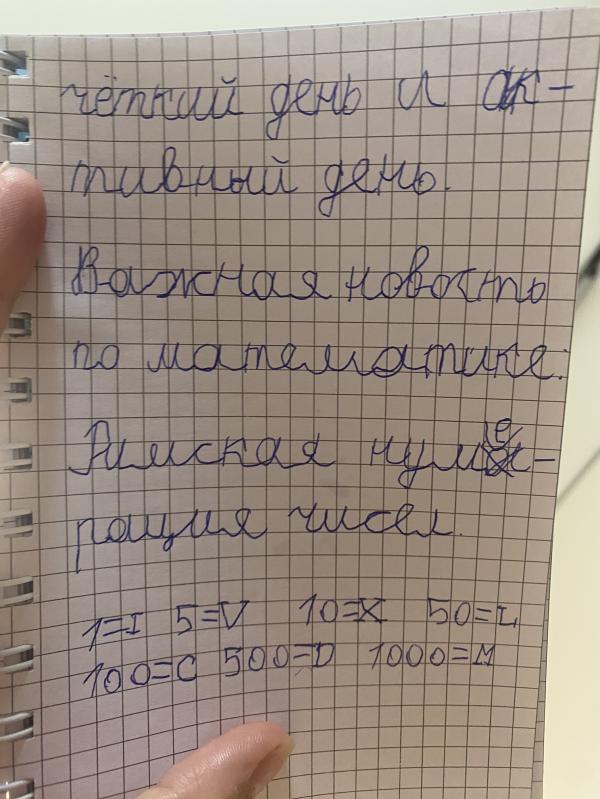 чёткий день и ак-
тивный день.
Важная новость
по математике:
Римская нуме-
рация чисел.
1=I 5=V 10=X 50=L
100=C 500=D 1000=M